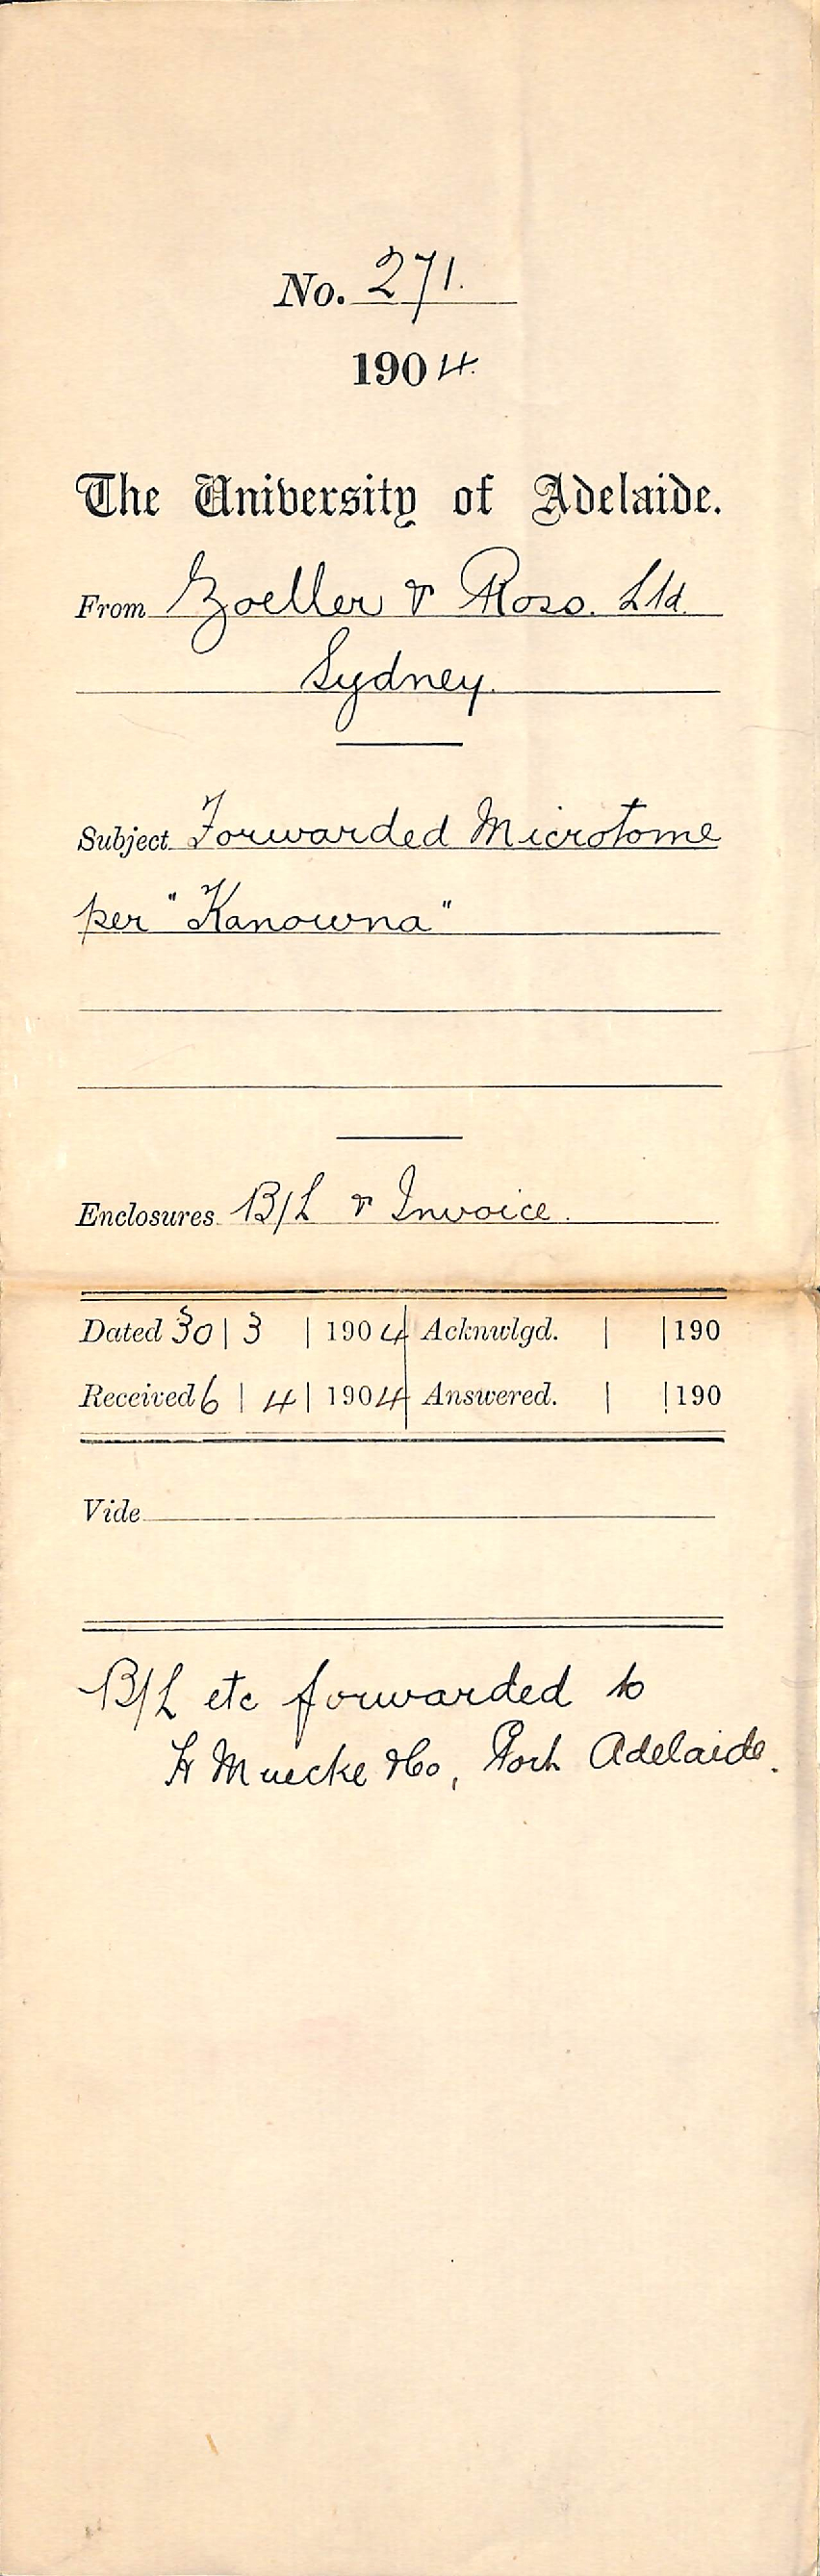 No. 271.
1904.
The University of Adelaide.
From Zoeller & Ross. Ltd.
Sydney.
Subject Forwarded Microtome
per "Kanowna"
Enclosures B/L & Invoice.
Dated 30 | 3 | 1904 Acknwlgd. | | 190
Received 6 | 4 | 1904 Answered. | | 190
Vide
B/L etc forwarded to
H Muecke & Co, Port Adelaide.